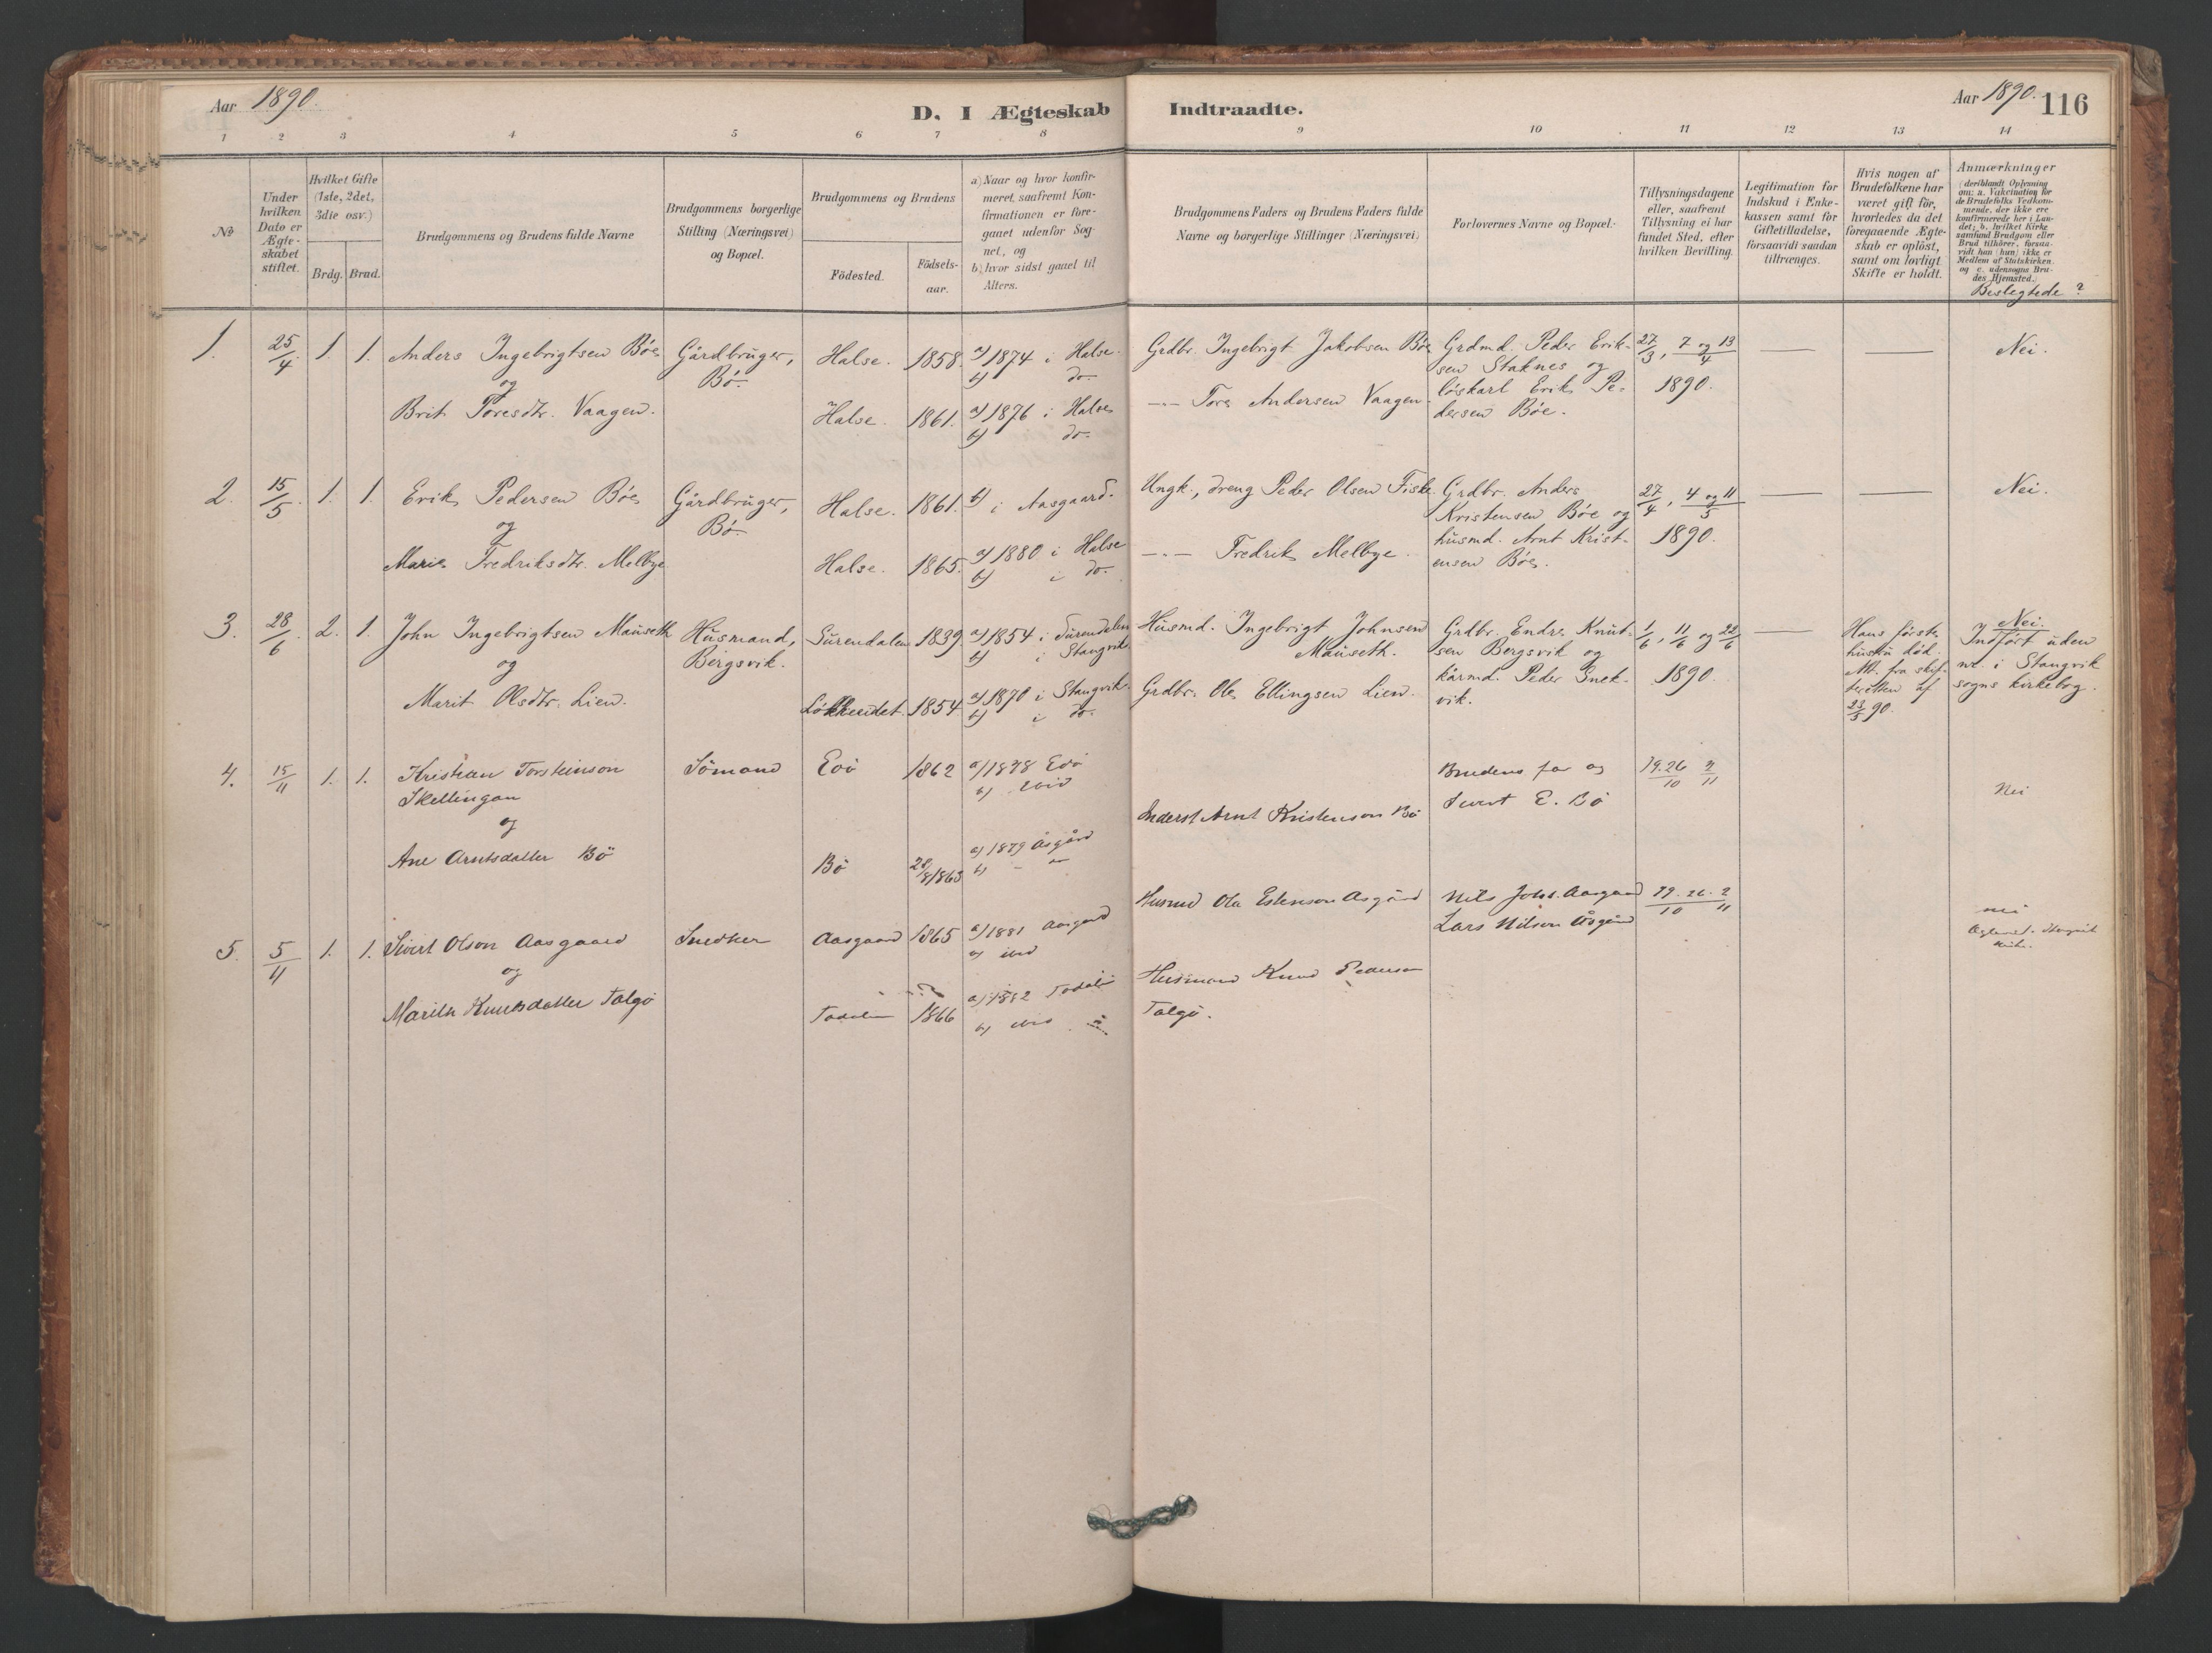 Aar 1890.
D. I Ægteskab Indtraadte.
Aar 1890. 116
1 2 3 4 5 6 7 8 9 10 11 12 13 14
No
Under hvilken Dato er Ægteskabet stiftet.
Hvilket Gifte (1ste, 2det, 3die osv.)
Brdg. Brud.
Brudgommens og Brudens fulde Navne
Brudgommens borgerlige Stilling (Næringsvei) og Bopæl.
Brudgommens og Brudens
Födested.
Födsels-aar.
a) Naar og hvor konfir-
meret, saafremt Kon-
firmationen er fore-
gaaet udenfor Sog-
net, og
b) hvor sidst gaaet til
Alters.
Brudgommens Faders og Brudens Faders fulde
Navne og borgerlige Stillinger (Næringsvei)
Forlovernes Navne og Bopæl.
Tillysningsdagene
eller, saafremt
Tillysning ei har
fundet Sted, efter
hvilken Bevilling.
Legitimation for
Indskud i Enke-
kassen samt for
Giftetilladelse,
forsaavidt saadan
tiltrænges.
Hvis nogen af
Brudefolkene har
været gift för,
hvorledes da det
foregaaende Ægte-
skab er oplöst,
samt om lovligt
Skifte er holdt.
Anmærkninger
(deriblandt Oplysning
om: a. Vakcination for
de Brudefolks Vedkom-
mende, der ikke ere
konfirmerede her i Lan-
det; b. hvilket Kirke
samfund Brudgom eller
Brud tilhörer, forsaa-
vidt han (hun) ikke er
Medlem af Statskirken.
og c. udensogns Bru-
des Hjemsted.)
Beslegtede?
1. 25/4 1. 1. Anders Ingebrigtsen Böe
og
Brit Toresdtr. Vaagen.
Gårdbruger,
Bö.
Halse. 1858. a) 1874 i Halse.
b) do.
Halse. 1861. a) 1876 i Halse
b) do.
Grdbr. Ingebrigt Jakobsen Böe
—"— Tore Andersen Vaagen.
Grdmd. Peder Erik-
sen Staknes og
löskarl Erik Pe-
dersen Böe.
27/3, 7 og 13/4
1890.
— —
Nei.
2. 15/5 1. 1. Erik Pedersen Böe
og
Marie Fredriksdtr. Melbye
Gårdbruger,
Bö.
Halse. 1861. b) i Aasgaard.
Halse. 1865. a) 1880 i Halse
b) i do.
Ungk., dreng Peder Olsen Fiske
—"— Fredrik Melbye.
Grdbr. Anders
Kristensen Böe og
husmd. Arnt Krist-
ensen Böe.
27/4, 4 og 11/5
1890.
— —
Nei.
3. 28/6 2. 1. John Ingebrigtsen Mauseth
og
Marit Olsdtr. Lien.
Husmand,
Bergsvik.
Surendalen 1839. a) 1854 i Surendalen
b) i Stangvik
Lökkeidet. 1854. a) 1870 i Stangvik.
b) i do.
Husmd. Ingebrigt Johnsen
Mauseth.
Grdbr. Ole Ellingsen Lien.
Grdbr. Endre Knut-
sen Bergsvik og
kårmd. Peder Snek-
vik.
1/6, 11/6 og 22/6
1890.
—
Hans förste
hustru död.
Att. fra skif-
teretten af
23/5 90.
Nei.
Indfört uden
nr. i Stangvik
sogns kirkebog.
4. 15/11 1. 1. Kristian Torsteinson
Skellingan
og
Ane Arntsdatter Bö
Sömand
Edö 1862 a) 1878 Edö
b) ibid
Bö 28/8 1863 a) 1879 Åsgård
b) - "
Inderst Arnt Kristenson Bö
Brudens far og
Sivert E. Bö
19. 26/10 2/11
Nei
5. 5/11 1. 1. Sivert Olson Aasgaard
og
Marith Knudsdatter Talgö
Snedker
Aasgaard 1865 a) 1881 Aasgard
b) ibid
1866 a) 1882
b) ibid
Husmd Ola Estenson Åsgård
Husmand Knud Pederson
Talgö.
Nils Johs. Aasgaard
Lars Nilson Åsgård
19. 26./10 2/11
nei